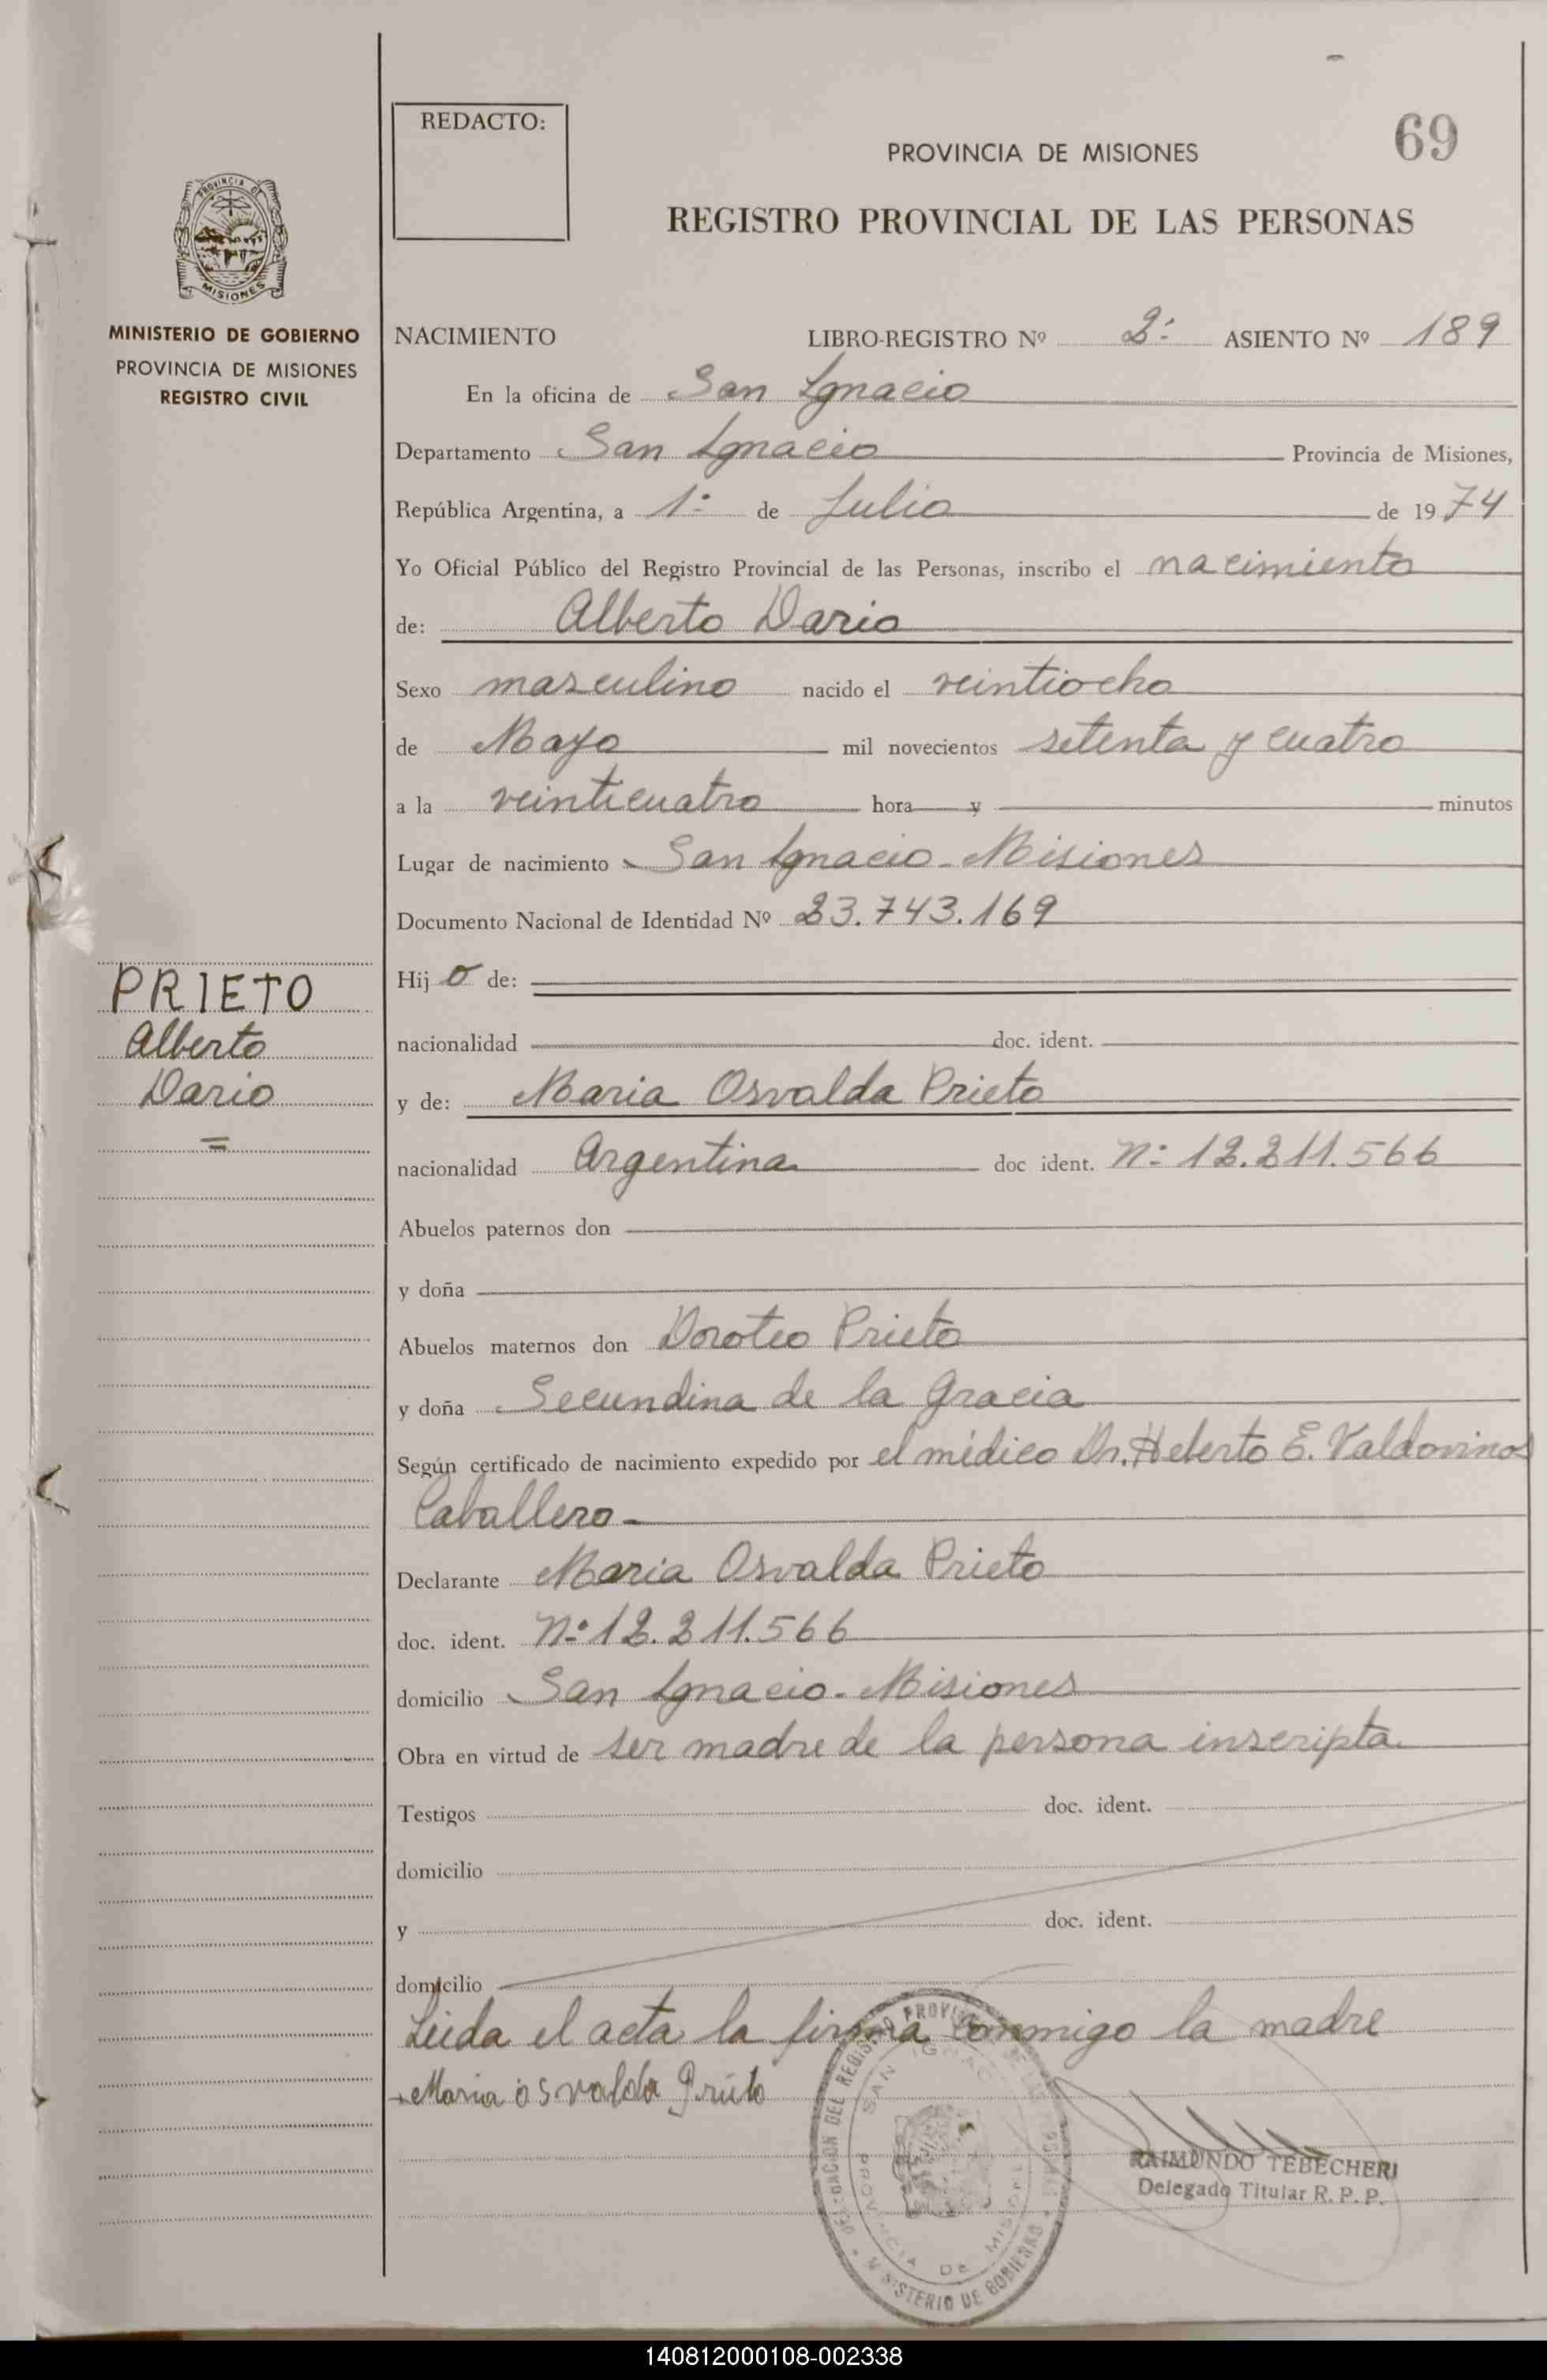 REDACTO:
69
PROVINCIA DE MISIONES
REGISTRO PROVINCIAL DE LAS PERSONAS
PROVINCIA DE
MISIONES
MINISTERIO DE GOBIERNO
PROVINCIA DE MISIONES
REGISTRO CIVIL
NACIMIENTO LIBRO-REGISTRO Nº 2º ASIENTO Nº 189
En la oficina de San Ignacio
Departamento San Ignacio Provincia de Misiones,
República Argentina, a 1º de Julio de 1974
Yo Oficial Público del Registro Provincial de las Personas, inscribo el nacimiento
de: Alberto Dario
Sexo masculino nacido el veintiocho
de Mayo mil novecientos setenta y cuatro
a la veinticuatro hora y minutos
Lugar de nacimiento San Ignacio - Misiones
Documento Nacional de Identidad Nº 23.743.169
PRIETO
Alberto
Dario
=
Hijo de:
nacionalidad doc. ident.
y de: Maria Osvalda Prieto
nacionalidad Argentina doc ident. Nº 12.211.566
Abuelos paternos don
y doña
Abuelos maternos don Doroteo Prieto
y doña Secundina de la Gracia
Según certificado de nacimiento expedido por el médico Dr. Heberto E. Valdovinos
Caballero -
Declarante Maria Osvalda Prieto
doc. ident. Nº 12.211.566
domicilio San Ignacio - Misiones
Obra en virtud de ser madre de la persona inscripta.
Testigos doc. ident.
domicilio
y doc. ident.
domicilio
Leida el acta la firma conmigo la madre
Maria osvalda Prieto
SAN IGNACIO
PROVINCIA DE MISIONES
MINISTERIO DE GOBIERNO
RAIMUNDO TEBECHERI
Delegado Titular R. P. P.
140812000108-002338